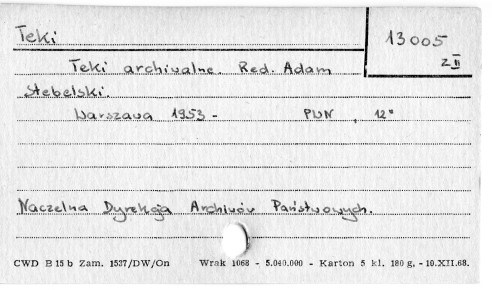 Teki
13005
z II
Teki archiwalne. Red. Adam
Stebelski.
Warszawa 1953 - PWN, 12°
Naczelna Dyrekcja Archiwów Państwowych.
CWD B 15 b Zam. 1537/DW/On Wrak 1068 - 5.040.000 - Karton 5 kl. 180 g. - 10.XII.68.